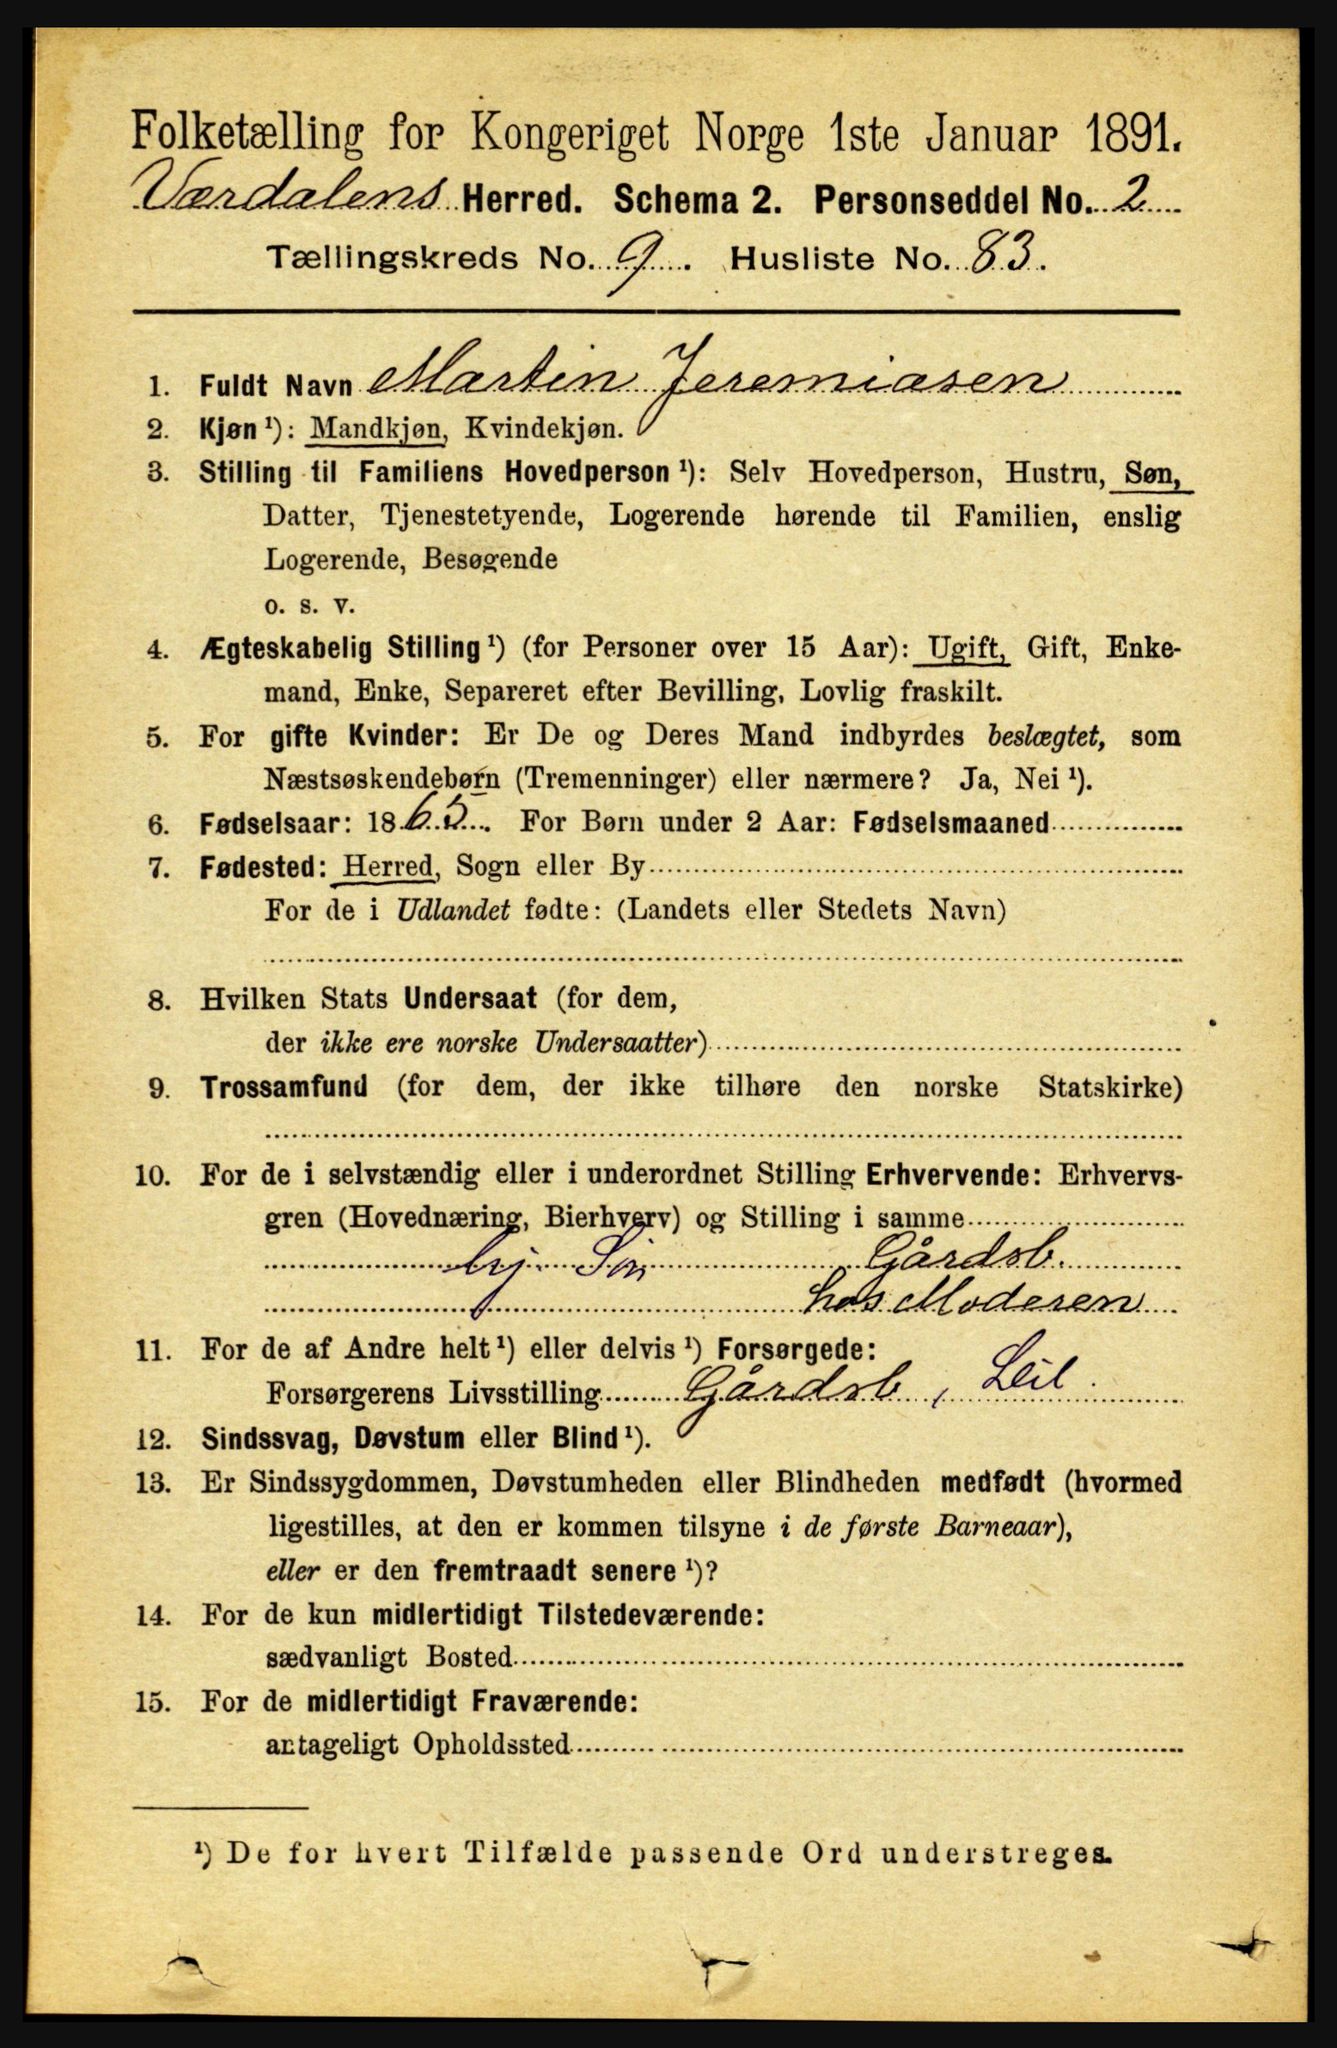 Folketælling for Kongeriget Norge 1ste Januar 1891.
Værdalens Herred. Schema 2. Personseddel No. 2
Tællingskreds No. 9. Husliste No. 83.
1. Fuldt Navn Martin Jeremiasen
2. Kjøn ¹): Mandkjøn, Kvindekjøn.
3. Stilling til Familiens Hovedperson ¹): Selv Hovedperson, Hustru, Søn,
Datter, Tjenestetyende, Logerende hørende til Familien, enslig
Logerende, Besøgende
o. s. v.
4. Ægteskabelig Stilling ¹) (for Personer over 15 Aar): Ugift, Gift, Enke-
mand, Enke, Separeret efter Bevilling, Lovlig fraskilt.
5. For gifte Kvinder: Er De og Deres Mand indbyrdes beslægtet, som
Næstsøskendebørn (Tremenninger) eller nærmere? Ja, Nei ¹).
6. Fødselsaar: 1865. For Børn under 2 Aar: Fødselsmaaned
7. Fødested: Herred, Sogn eller By
For de i Udlandet fødte: (Landets eller Stedets Navn)
8. Hvilken Stats Undersaat (for dem,
der ikke ere norske Undersaatter)
9. Trossamfund (for dem, der ikke tilhøre den norske Statskirke)
10. For de i selvstændig eller i underordnet Stilling Erhvervende: Erhvervs-
gren (Hovednæring, Bierhverv) og Stilling i samme
Søn Gårdsb.
hos Moderen
11. For de af Andre helt ¹) eller delvis ¹) Forsørgede:
Forsørgerens Livsstilling Gårdsb, Leil.
12. Sindssvag, Døvstum eller Blind ¹).
13. Er Sindssygdommen, Døvstumheden eller Blindheden medfødt (hvormed
ligestilles, at den er kommen tilsyne i de første Barneaar),
eller er den fremtraadt senere ¹)?
14. For de kun midlertidigt Tilstedeværende:
sædvanligt Bosted
15. For de midlertidigt Fraværende:
antageligt Opholdssted
¹) De for hvert Tilfælde passende Ord understreges.